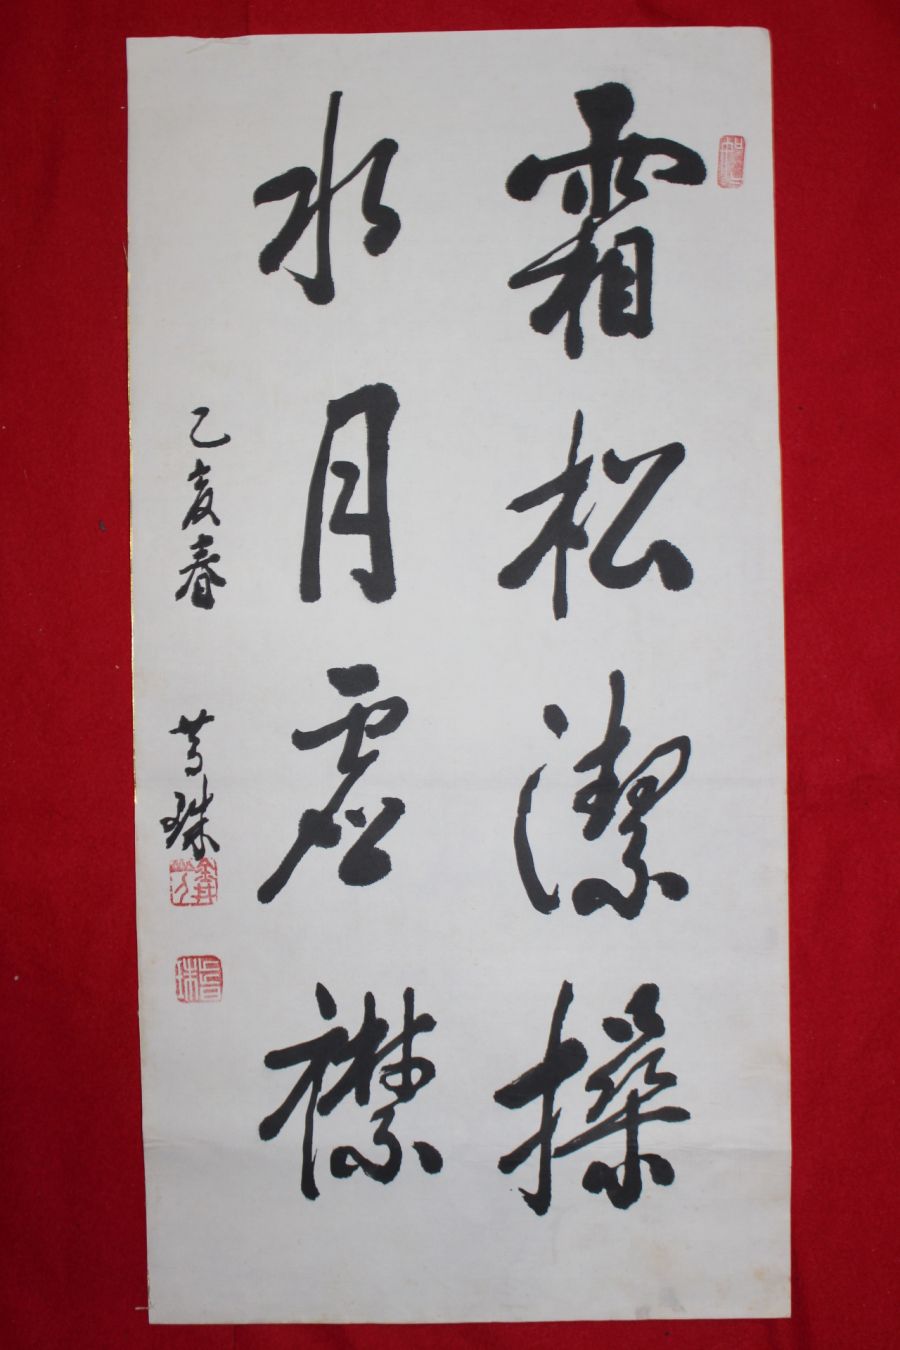 霜松潔操
水月虛襟
乙亥春
珠